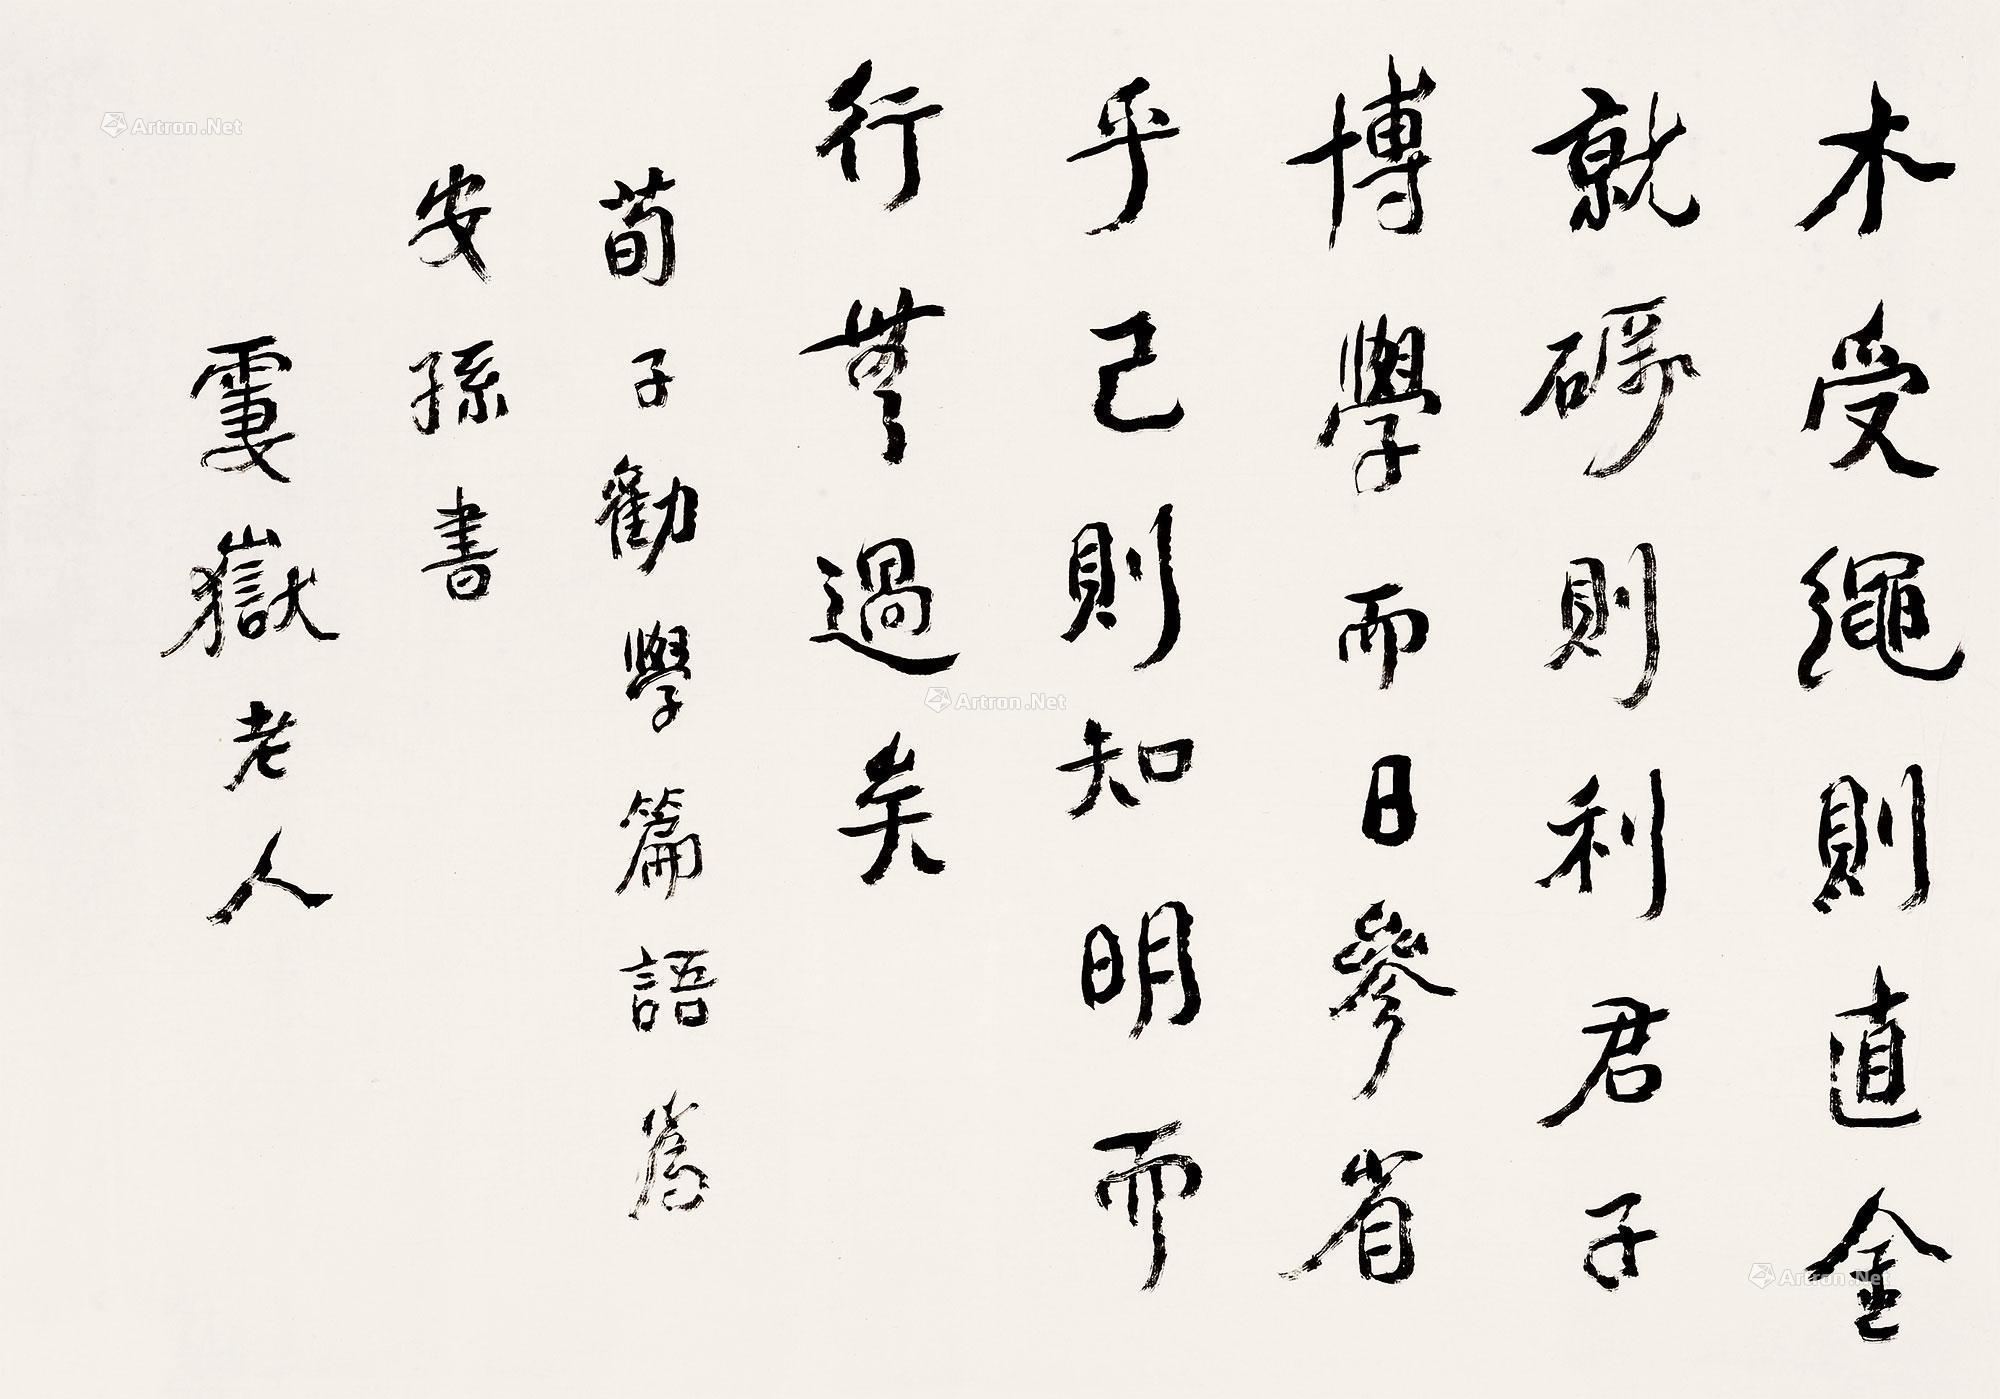 木受繩則直金
就礪則利君子
博學而日參省
乎己則知明而
行無過矣
荀子勸學篇語為
安孫書
霋嶽老人
Artron.Net
Artron.Net
Artron.Net